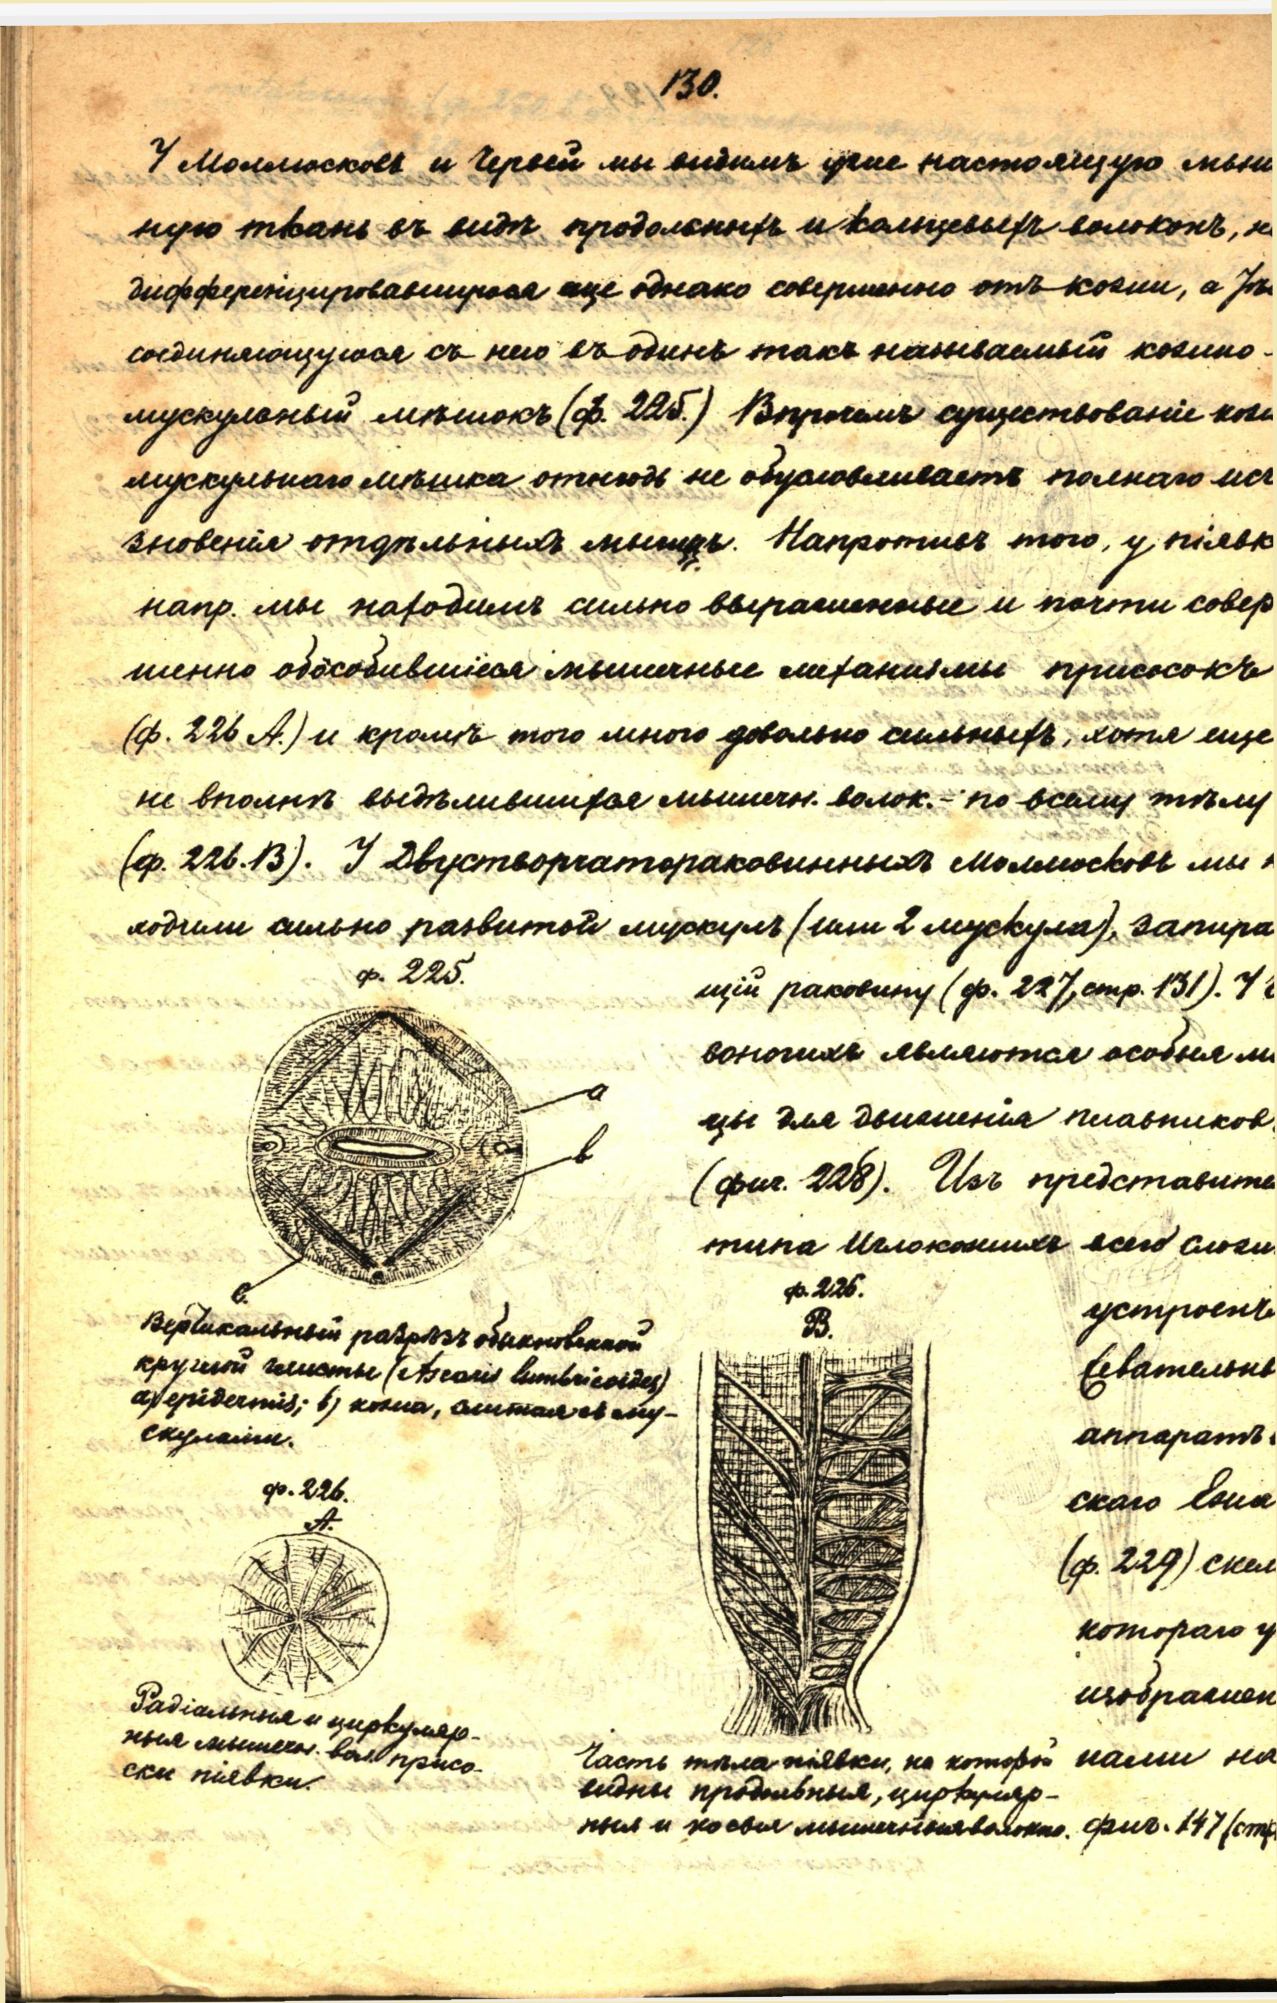 130.
У Моллюсковъ и Червей мы видимъ уже настоящую мыш
ную ткань въ видѣ продольныхъ и кольцевыхъ волоконъ, н
дифференцировавшуюся еще однако совершенно отъ кожи, а
соединяющуюся съ нею въ одинъ такъ называемый кожно-
мускульный мѣшокъ (ф. 225.) Впрочемъ существованіе кож
мускульнаго мѣшка отнюдь не обусловливаетъ полнаго исч
зновенія отдѣльныхъ мышцъ. Напротивъ того, у піявк
напр. мы находимъ сильно выраженные и почти совер
шенно обособившіеся мышечные механизмы присосокъ
(ф. 226 А.) и кромѣ того много довольно сильныхъ, хотя еще
не вполнѣ выдѣлившихся мышечн. волок. – по всему тѣлу
(ф. 226. В). У Двустворчатораковинныхъ Моллюсковъ мы н
ходили сильно развитой мускулъ (или 2 мускула), запира
щій раковину (ф. 227, стр. 131). У
воногихъ являются особыя мы
цы для движенія плавниковъ
(фиг. 228). Изъ представите
типа Иглокожихъ всего слож
устроенъ
жевательны
аппаратъ
скаго Ежа
(ф. 229) скел
котораго у
изображен
нами на
фиг. 147 (стр
ф. 225.
а
в
с.
Вертикальный разрѣзъ обыкновенной
круглой глисты (Ascaris lumbricoides)
a) epidermis; b) кожа, слитая съ му-
скулами.
ф. 226.
А.
Радіальныя и циркуляр-
ныя мышечн. вол. присо-
ски піявки.
ф. 226.
В.
Часть тѣла піявки, на которой
видны продольныя, циркуляр-
ныя и косыя мышечныя волокна.